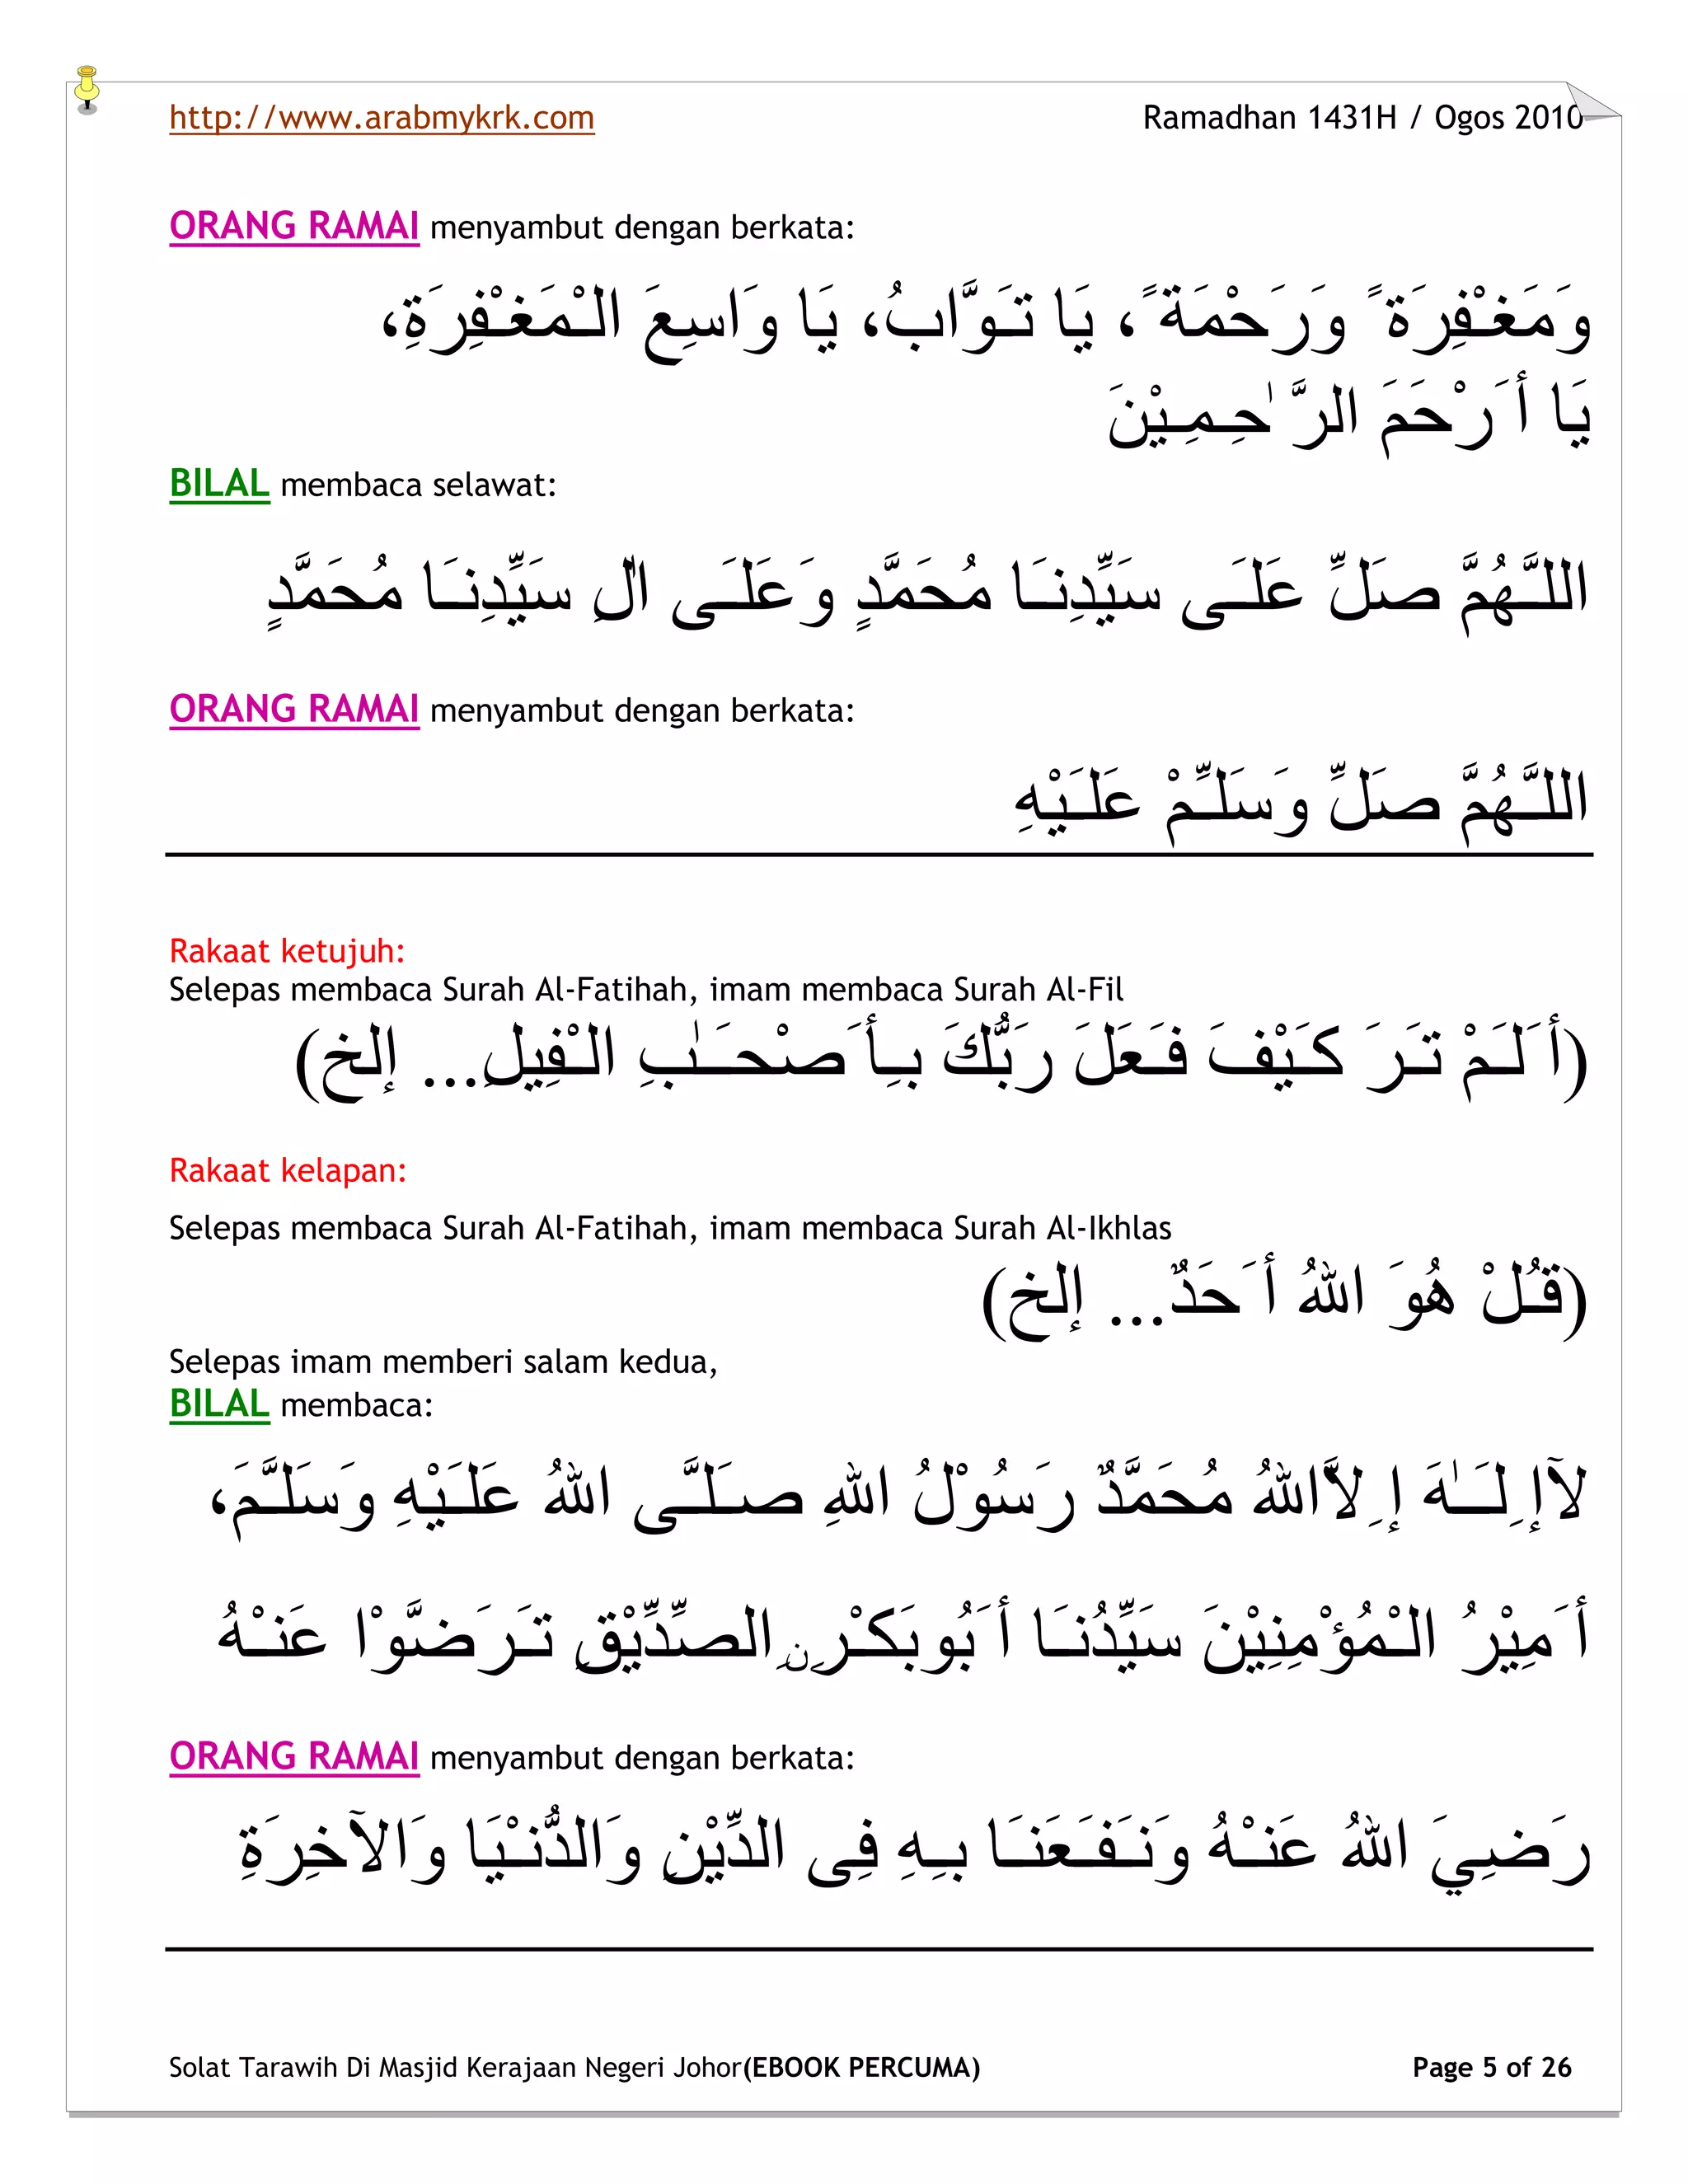 http://www.arabmykrk.com Ramadhan 1431H / Ogos 2010
ORANG RAMAI menyambut dengan berkata:
وَمَغْـفِرَةً وَرَحْمَةً، يَا تَـوَّابُ، يَا وَاسِعَ الـْـمَغْـفِرَةِ،
يَا أَرْحَمَ الرَّٰحِـمِـيْنَ
BILAL membaca selawat:
اللـَّـهُمَّ صَلِّ عَلَـــى سَيِّدِنـَــا مُحَمَّدٍ وَعَلَـــى اٰلِ سَيِّدِنـَــا مُحَمَّدٍ
ORANG RAMAI menyambut dengan berkata:
اللـَّـهُمَّ صَلِّ وَسَلـِّـمْ عَلَـيْـهِ
Rakaat ketujuh:
Selepas membaca Surah Al-Fatihah, imam membaca Surah Al-Fil
(أَلَـمْ تَـرَ كَـيْفَ فَـعَلَ رَبُّكَ بِـأَصْحَــٰبِ الـْـفِيلِ... إلخ)
Rakaat kelapan:
Selepas membaca Surah Al-Fatihah, imam membaca Surah Al-Ikhlas
(قُـلْ هُوَ اللهُ أَحَدٌ... إلخ)
Selepas imam memberi salam kedua,
BILAL membaca:
لآإِلَــٰـهَ إِلاَّاللهُ مُحَمَّدٌ رَسُوْلُ اللهِ صَـلـَّـى اللهُ عَلَـيْـهِ وَسَلـَّـمَ،
أَمِيْرُ الـْـمُؤْمِنِيْنَ سَيِّدُنـَــا أَبُوبَكْـرٍنِ الصِّدِّيْقِ تَـرَضَّوْا عَنْـهُ
ORANG RAMAI menyambut dengan berkata:
رَضِيَ اللهُ عَنْـهُ وَنَـفَـعَنـَــا بِـهِ فِـى الدِّيْنِ وَالدُّنْـيَا وَالآخِرَةِ
Solat Tarawih Di Masjid Kerajaan Negeri Johor(EBOOK PERCUMA) Page 5 of 26